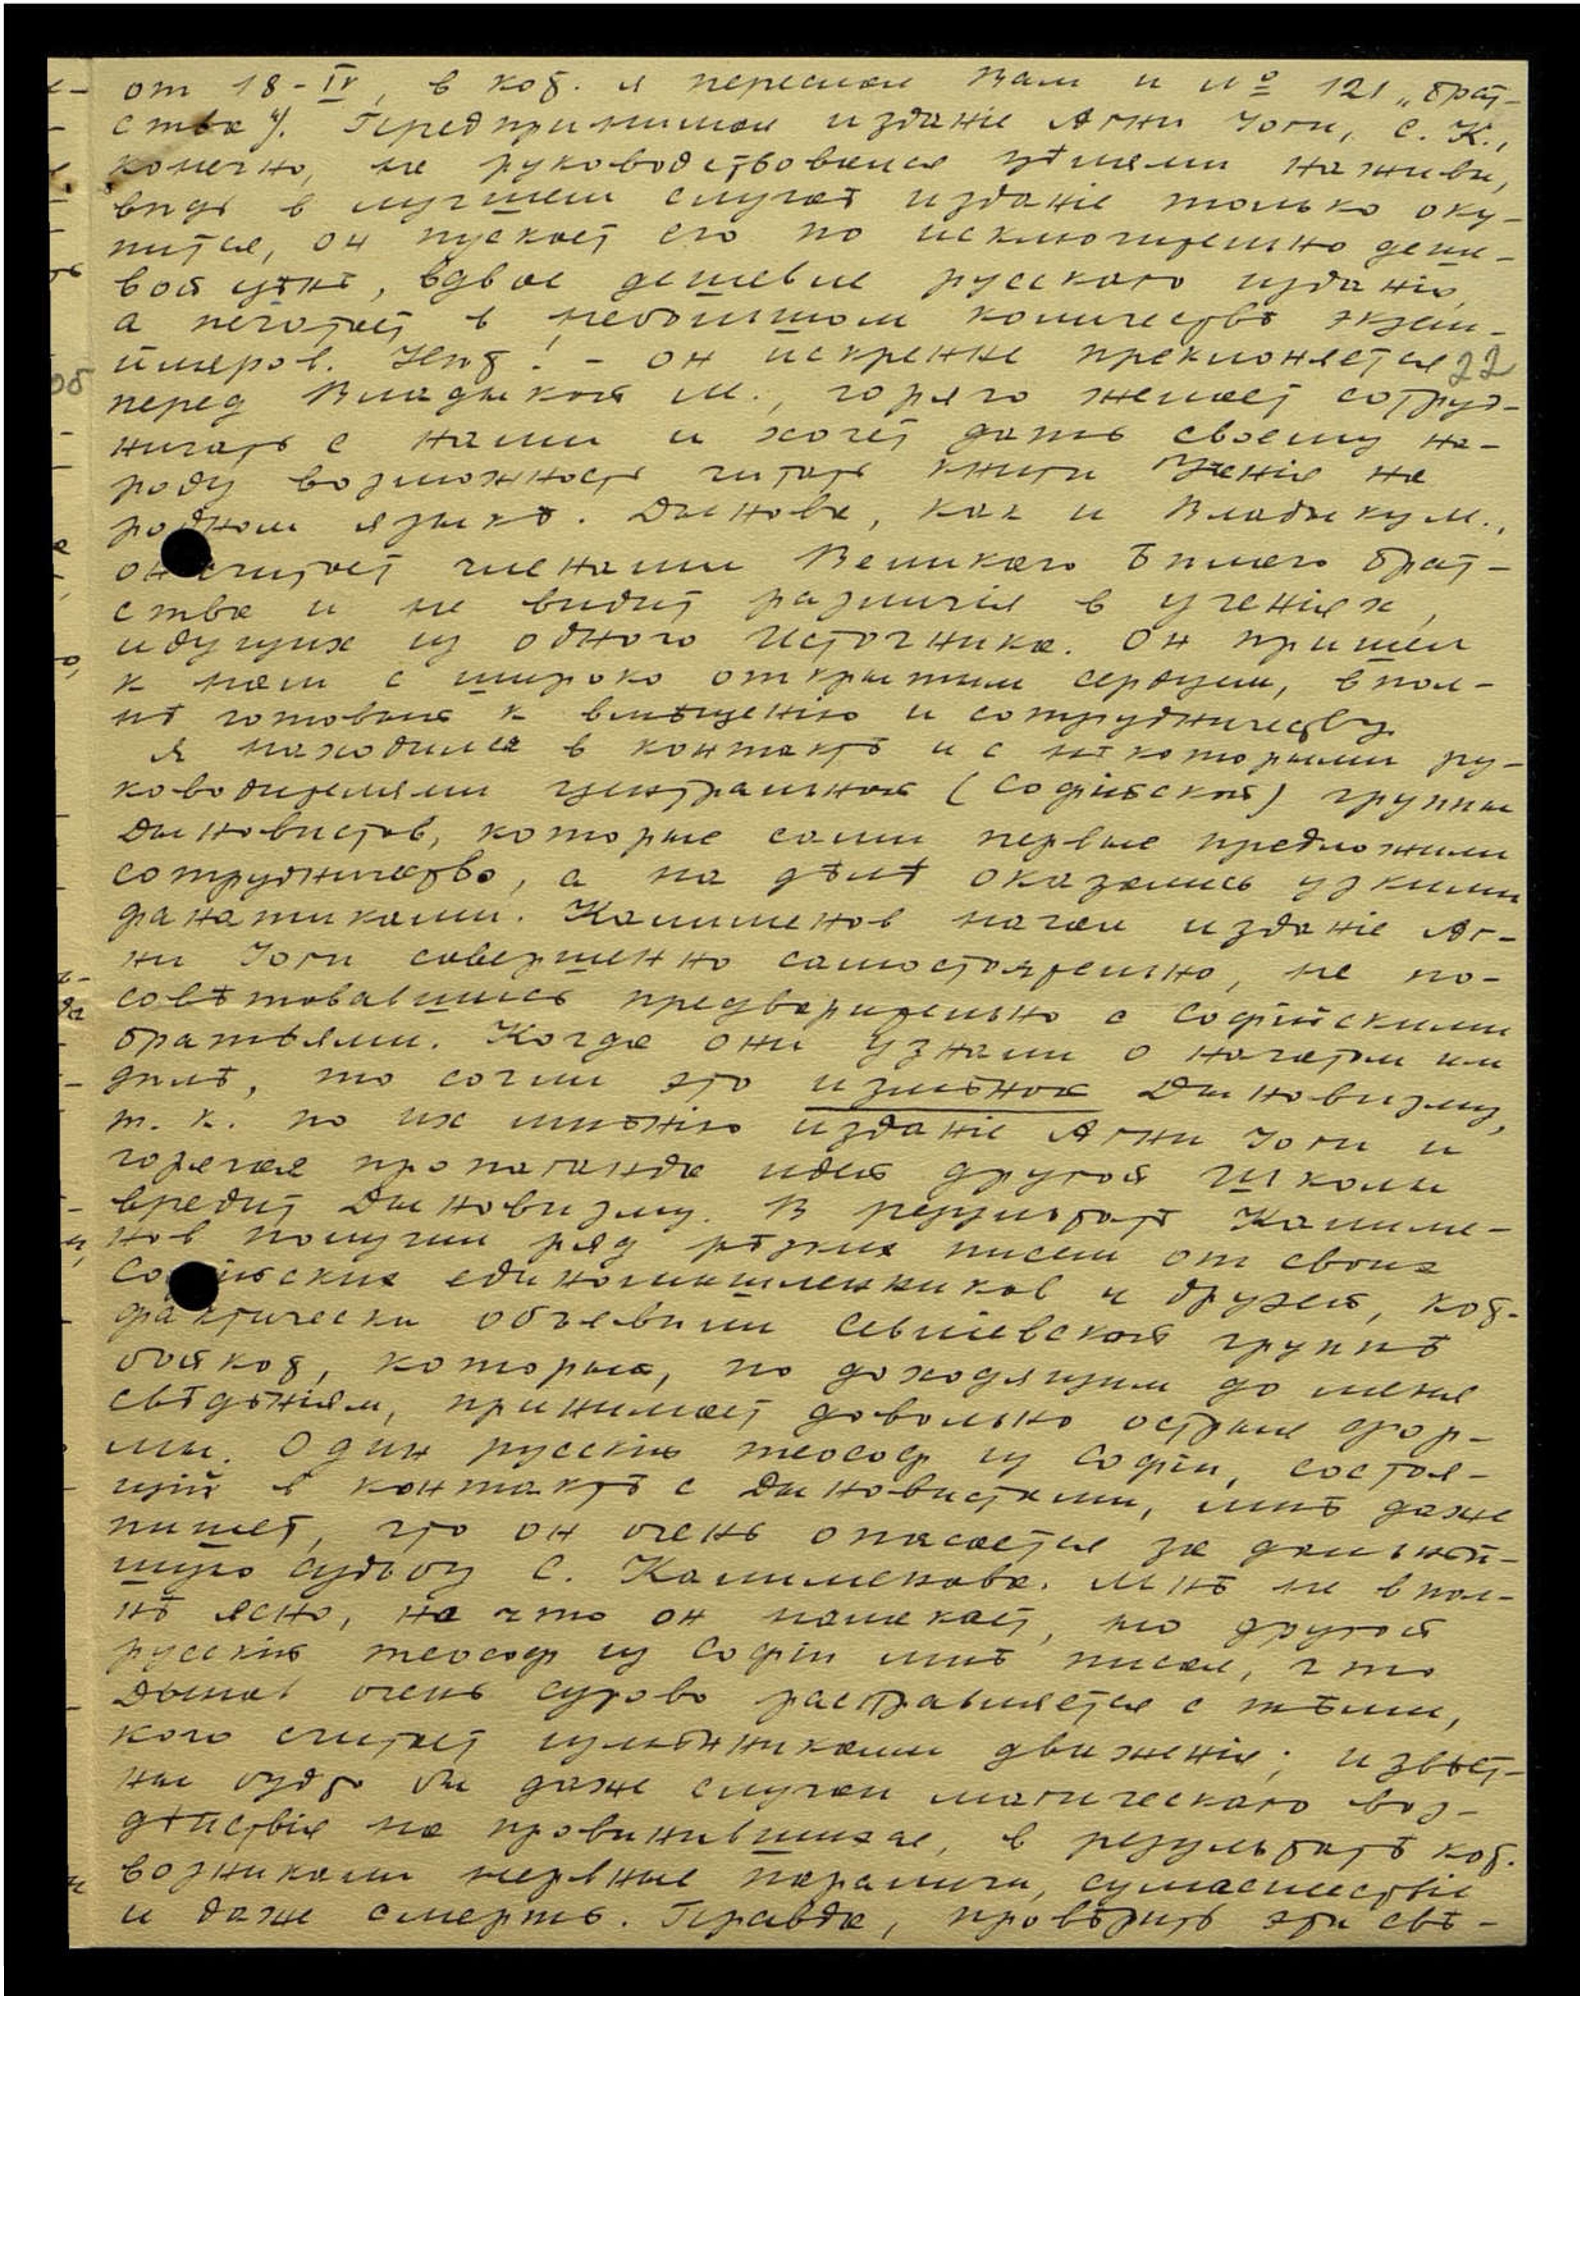 от 18-IV, в коб. я переслал Вам и № 121 „Брат-
ства“). Предпринимая изданіе Агни Іоги, С. К.,
конечно, не руководствовался цѣлями наживы,
ведь в лучшем случаѣ изданіе только оку-
пится, он пускает его по исключительно деше-
вой цѣнѣ, вдвое дешевле русского изданія,
а печатает в небольшом количествѣ экзем-
пляров. Нѣт! – он искренне преклоняется
22
перед Владыкой М., горячо желает сотруд-
ничать с нами и хочет дать своему на-
роду возможность читать книги Ученія на
родном языкѣ. Дынова, как и Владыку М.,
он считает членами Великаго Бѣлаго Брат-
ства и не видит различія в ученіях,
идущих из одного Источника. Он пришел
к нам с широко открытым сердцем, впол-
нѣ готовый к вмѣщенію и сотрудничеству.
Я находился в контактѣ и с нѣкоторыми ру-
ководителями центральной (Софійской) группы
Дыновистов, которые сами первые предложили
сотрудничество, а на дѣлѣ оказались узкими
фанатиками. Калименов начал изданіе Аг-
ни Іоги совершенно самостоятельно, не по-
совѣтовавшись предварительно с Софійскими
братьями. Когда они узнали о начатом им
дѣлѣ, то сочли это измѣной Дыновизму,
т. к. по их мнѣнію изданіе Агни Іоги и
горячая пропаганда идей другой школы
вредит Дыновизму. В результатѣ Калиме-
нов получил ряд рѣзких писем от своих
Софійских единомышленников и друзей, коб.
фактически объявили Севлиевской группѣ
бойкот, который, по доходящим до меня
свѣдѣніям, принимает довольно острые фор-
мы. Один русскій теософ из Софіи, состоя-
щій в контактѣ с Дыновистами, мнѣ даже
пишет, что он очень опасается за дальнѣй-
шую судьбу С. Калименова. Мнѣ не впол-
нѣ ясно, на что он намекает, но другой
русскій теософ из Софіи мнѣ писал, что
Дынов очень сурово расправляется с тѣми,
кого считает измѣнниками движенія; извѣст-
ны будто бы даже случаи магическаго воз-
дѣйствія на провинившихся, в результатѣ коб.
возникали нервные параличи, сумасшествіе
и даже смерть. Правда, провѣрить эти свѣ-